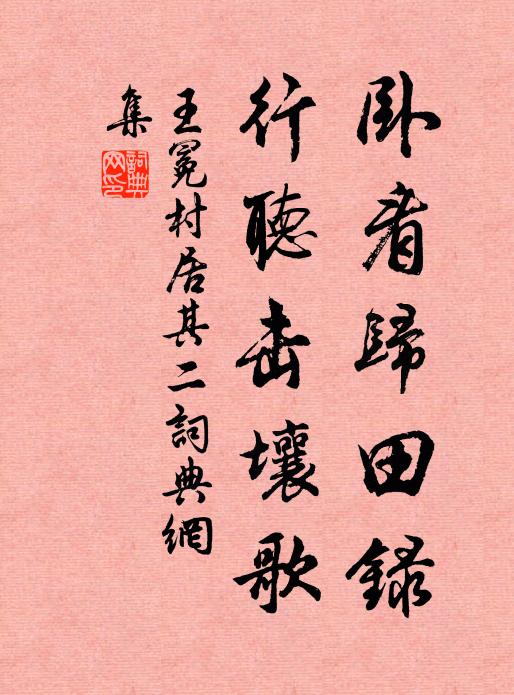 卧看歸田録
行聽击壤歌
王冕村居其二詞典網
集
詞典網印